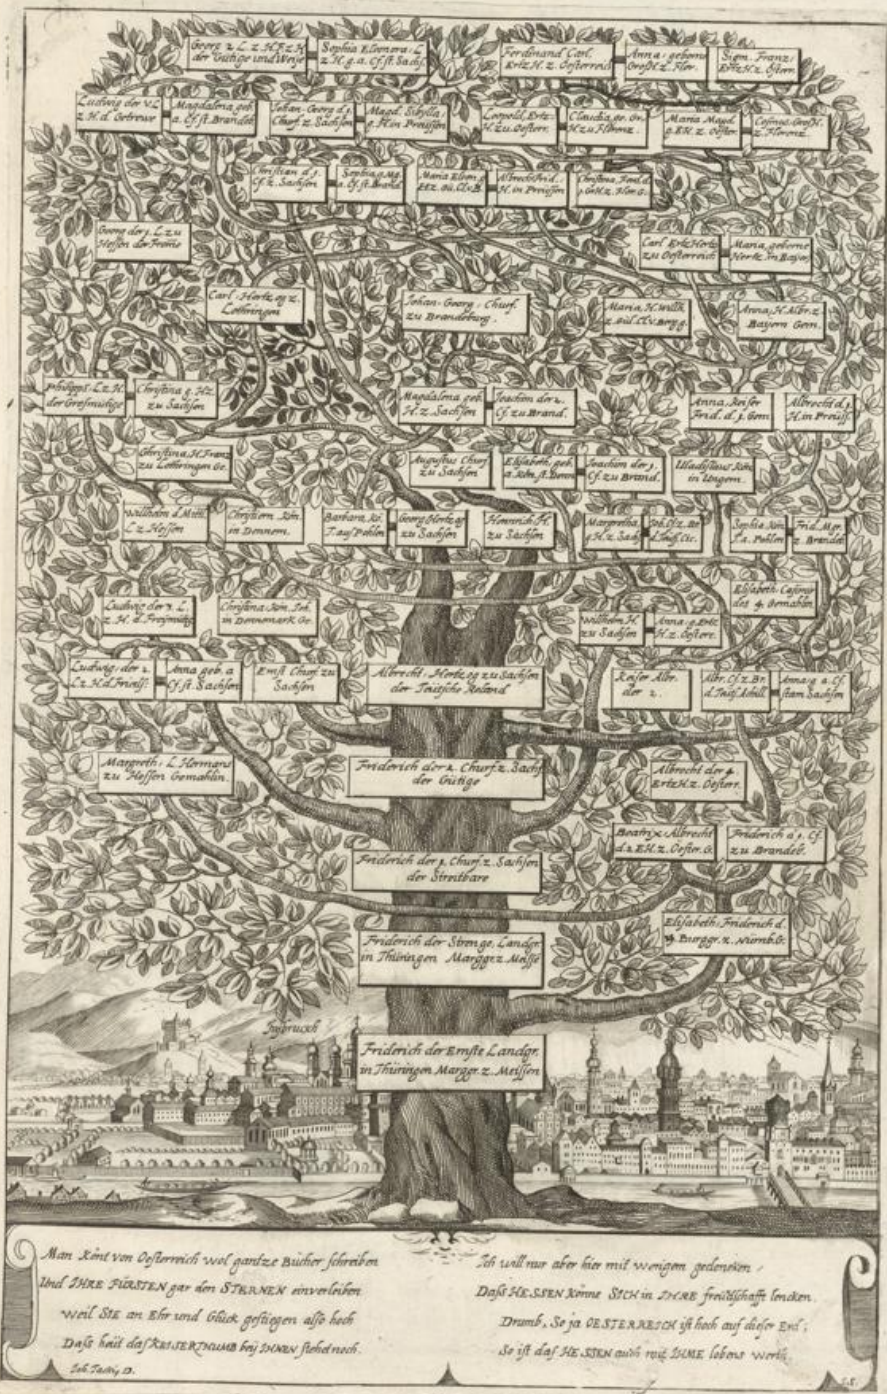 Georg 2 L. z. H. F. z. H
der Gütige und Weise
Sophia Eleonora: L
z. H. g. a. Cf. st. Sachs.
Ferdinand Carl,
ErtzH. z. Oesterreich
Anna: geborne
GrosH. z. Flor.
Sigm. Franz:
ErtzH. z. Östern
Ludwig der V. L
z. H. d. Getreue
Magdalena geb.
a. Cf. st. Brandeb
Johan-Georg d. 1
Churf. z. Sachsen
Magd. Sibylla:
g. H. in Preussen
Leopold, Ertz:
H. zu Oesterr.
Claudia, ge. Gr.
H. zu Florenz.
Maria Magd
g. EH. z. Oester.
Cosmus, GrosH.
z. Florenz.
Christian d. 1.
Cf. z. Sachsen
Sophia g. Mg.
a. Cf. st. Brand
Maria Eleon. g
HZ. zu. Cl. v. B.
Albrecht Frid.
H. in Preussen
Christina, Ferd. d.
1. GrH. z. Flor. G.
Georg der 1. L. zu
Hessen der Fromē
Carl ErtzHertz
zu Oesterreich
Maria, geborne
Hertz. in Bayer
Carl, Hertzog z.
Lothringen
Johan-Georg, Churf.
zu Brandeburg.
Maria H. Wilh.
z. Gül. Cl. v. Berg g.
Anna, H. Albr. z.
Bayern Gem.
Philipps, L. z. H.
der Grosmütige
Christina g. HZ.
zu Sachsen
Magdalena geb.
H. z. Sachsen
Joachim der 2.
Cf. zu Brand.
Anna, Keiser
Frid. d. 1. Gem
Albrecht d. 1
H. in Preuss.
Christina, H. Franz
zu Lothringen Ge.
Augustus Churf
zu Sachsen
Elisabeth, geb.
a. Kön. st. Denne
Joachim der 1.
Cf. zu Brand.
Uladislaus Kön
in Ungern.
Wilhelm d. Mitl.
L. z. Hessen
Christiern Kön.
in Dennem.
Barbara, Kö.
T. aus Pohlen
Georg Hertzog
zu Sachsen
Heinrich H.
zu Sachsen
Margretha,
g. H. z. Sach
Joh. Cf. z. Br.
d. Teüs. Cic.
Sophia Kön
T. a. Pohlen
Frid. Mgr.
z. Brandeb
Ludwig der 3. L.
z. H. d. Freymütig
Christina Kön. Joh.
in Dennemark Ge.
Wilhelm H.
zu Sachsen
Anna, g. Ertz
H. z. Oesterr.
Elisabeth: Casimir
des 4. Gemahlin
Ludwig, der 2.
L. z. H. d. Friedss.
Anna geb. a
Cf. st. Sachsen
Ernst Churf. zu
Sachsen
Albrecht, Hertzog zu Sachsen
der Teütsche Roland
Keiser Albr.
der 2.
Albr. Cf. z. Br.
d. Teüs. Achill.
Anna g. a. Cf.
stam Sachsen
Margreth: L. Hermans
zu Hessen Gemahlin.
Friderich der 2. Churf. z. Sachs
der Gütige
Albrecht der 4.
ErtzH. z. Oesterr.
Beatrix Albrecht
d. 2 EH. z. Oester. G.
Friderich d 1. Cf.
zu Brandeb.
Friderich der 1. Churf. z. Sachsen
der Streitbare
Elisabeth: Friderich d.
4 Burggr. z. Nürnb. G.
Friderich der Strenge, Landgr.
in Thüringen Marggr. z. Meissē
Insbruckh
Friderich der Ernste Landgr.
in Thüringen Marggr. z. Meissen
Man Könt von Oesterreich wol gantze Bücher schreiben
Und IHRE FÜRSTEN gar den STERNEN einverleiben
Weil SIE an Ehr und Glück gestiegen also hoch
Dass heüt das KEISERTHUMB bey IHNEN stehet noch.
Ich will nur aber hier mit wenigem gedencken,
Dass HESSEN Könne SICH in IHRE freündschafft lencken.
Drumb, So ja OESTERREICH ist hoch auf dieser Erd;
So ist das HESSEN auch mit IHME lobens werth.
Joh. Tackig, D.
I. S.